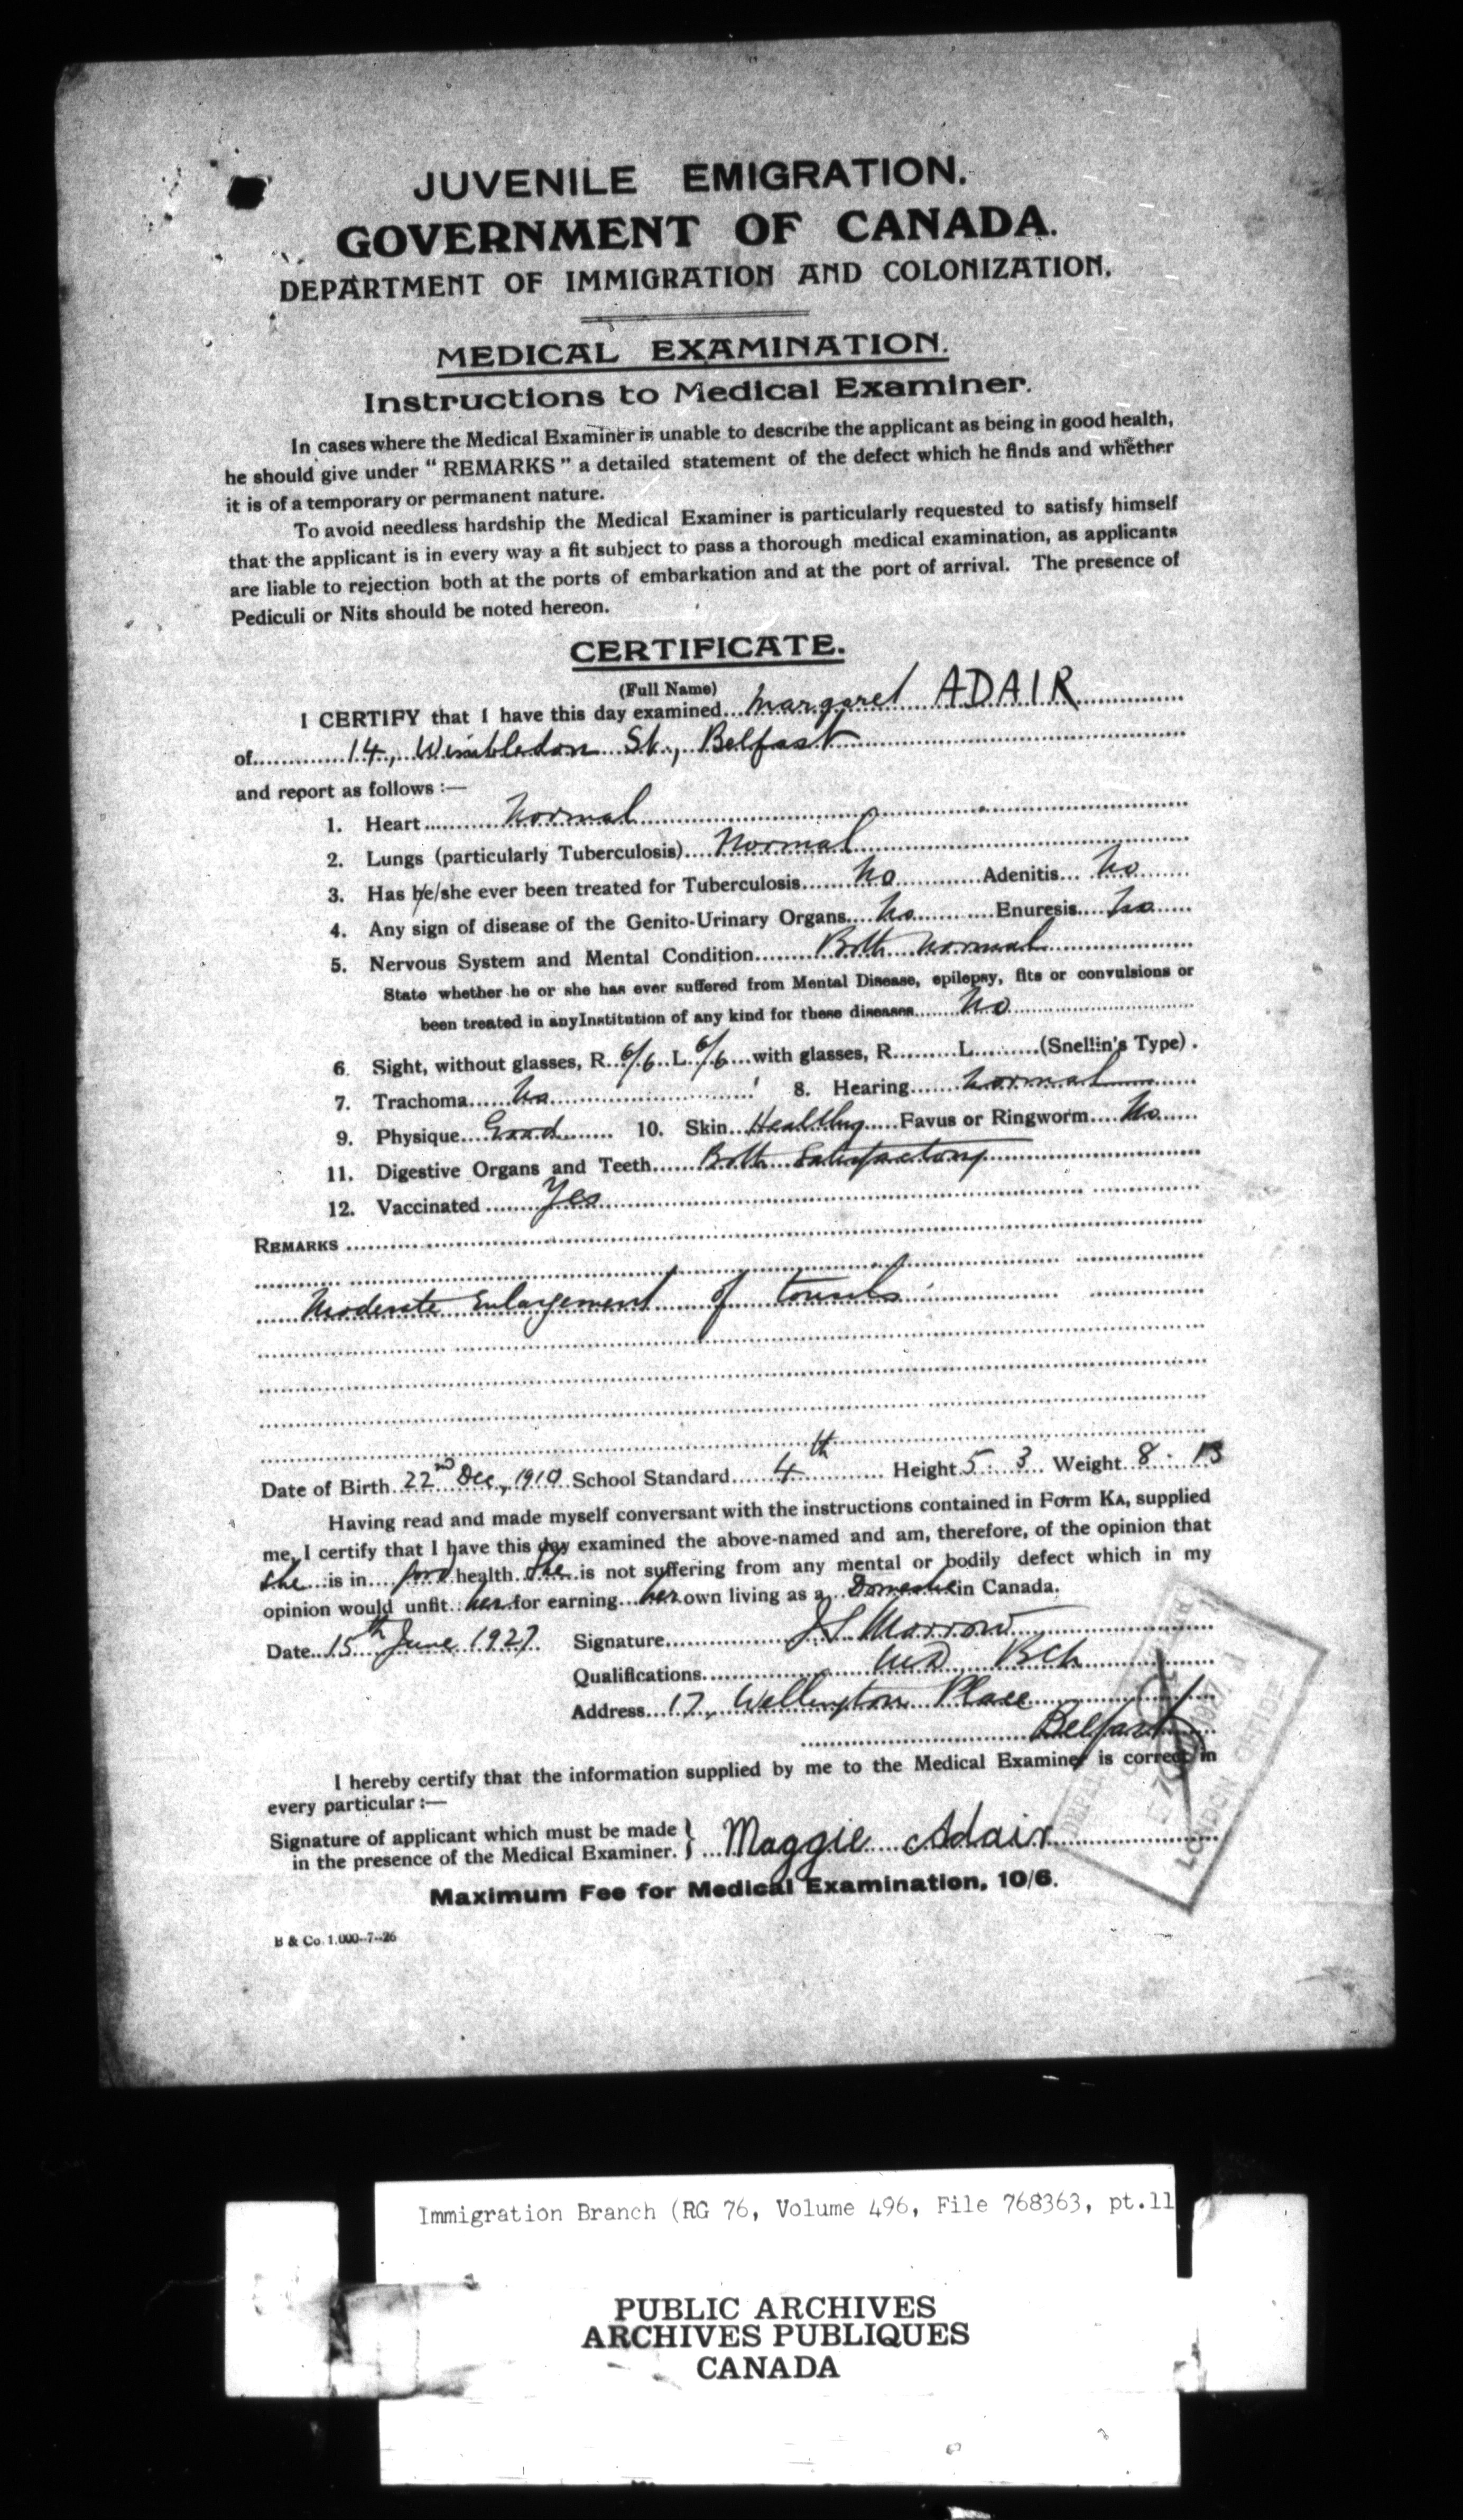 JUVENILE EMIGRATION.
GOVERNMENT OF CANADA.
DEPARTMENT OF IMMIGRATION AND COLONIZATION.
MEDICAL EXAMINATION.
Instructions to Medical Examiner.
In cases where the Medical Examiner is unable to describe the applicant as being in good health,
he should give under "REMARKS" a detailed statement of the defect which he finds and whether
it is of a temporary or permanent nature.
To avoid needless hardship the Medical Examiner is particularly requested to satisfy himself
that the applicant is in every way a fit subject to pass a thorough medical examination, as applicants
are liable to rejection both at the ports of embarkation and at the port of arrival. The presence of
Pediculi or Nits should be noted hereon.
CERTIFICATE.
(Full Name)
I CERTIFY that I have this day examined Margaret ADAIR
of 14, Wimbledon St., Belfast
and report as follows :—
1. Heart Normal
2. Lungs (particularly Tuberculosis) Normal
3. Has he/she ever been treated for Tuberculosis No Adenitis No
4. Any sign of disease of the Genito-Urinary Organs No Enuresis No
5. Nervous System and Mental Condition Both Normal
State whether he or she has ever suffered from Mental Disease, epilepsy, fits or convulsions or
been treated in any Institution of any kind for these diseases No
6. Sight, without glasses, R. 6/6 L. 6/6 with glasses, R. L. (Snellin's Type).
7. Trachoma No 8. Hearing Normal
9. Physique Good 10. Skin Healthy Favus or Ringworm No
11. Digestive Organs and Teeth Both Satisfactory
12. Vaccinated Yes
REMARKS
Moderate Enlargement of tonsils
Date of Birth 22nd Dec, 1910 School Standard 4th Height 5 : 3 Weight 8 . 13
Having read and made myself conversant with the instructions contained in Form KA, supplied
me, I certify that I have this day examined the above-named and am, therefore, of the opinion that
she is in good health She is not suffering from any mental or bodily defect which in my
opinion would unfit her for earning her own living as a Domestic in Canada.
Date 15th June 1927 Signature J S Morrow
Qualifications MD BCh
Address 17, Wellington Place
Belfast
I hereby certify that the information supplied by me to the Medical Examiner is correct in
every particular :—
Signature of applicant which must be made
in the presence of the Medical Examiner. } Maggie Adair
LONDON OFFICE
Maximum Fee for Medical Examination, 10/6.
B & Co. 1,000--7--26
Immigration Branch (RG 76, Volume 496, File 768363, pt.11
PUBLIC ARCHIVES
ARCHIVES PUBLIQUES
CANADA